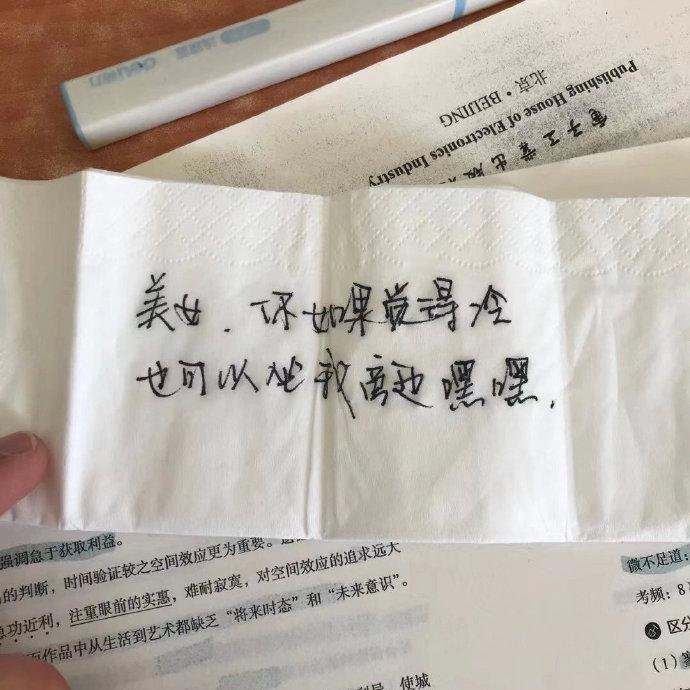 deli得力
北京·BEIJING
Publishing House of Electronics Industry
电子工业出版
美女.你如果觉得冷
也可以坐我旁边嘿嘿.
强调急于获取利益。
的判断，时间验证较之空间效应更为重要。
急功近利，注重眼前的实惠，难耐寂寞，对空间效应的追求远大
作品中从生活到艺术都缺乏“将来时态”和“未来意识”。
使城
微不足道；
考频：8
区分
（1）